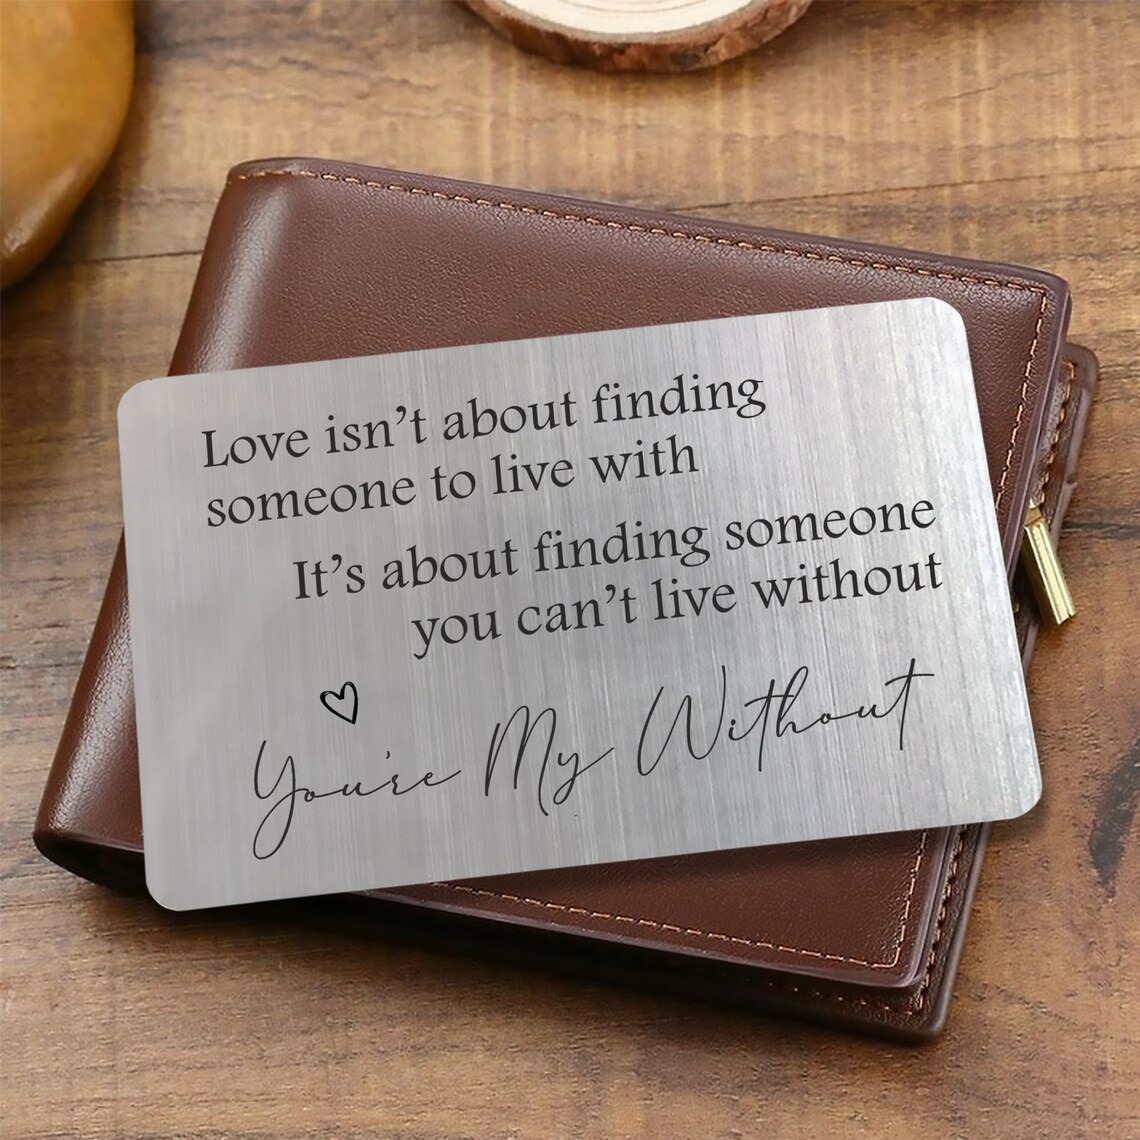 Love isn’t about finding
someone to live with
It’s about finding someone
you can’t live without
You're My Without